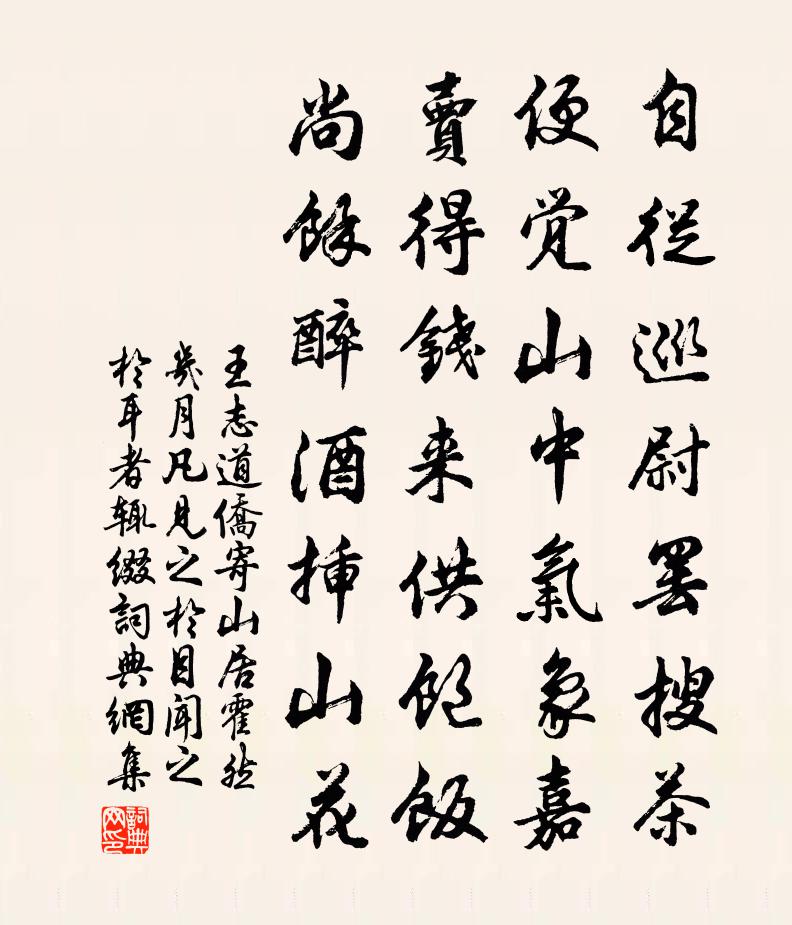 自從巡尉罷搜茶
便觉山中氣象嘉
賣得錢来供飽飯
尚餘醉酒插山花
王志道僑寄山居霍然
幾月凡見之於目聞之
於耳者辄綴詞典網集
詞典
网印